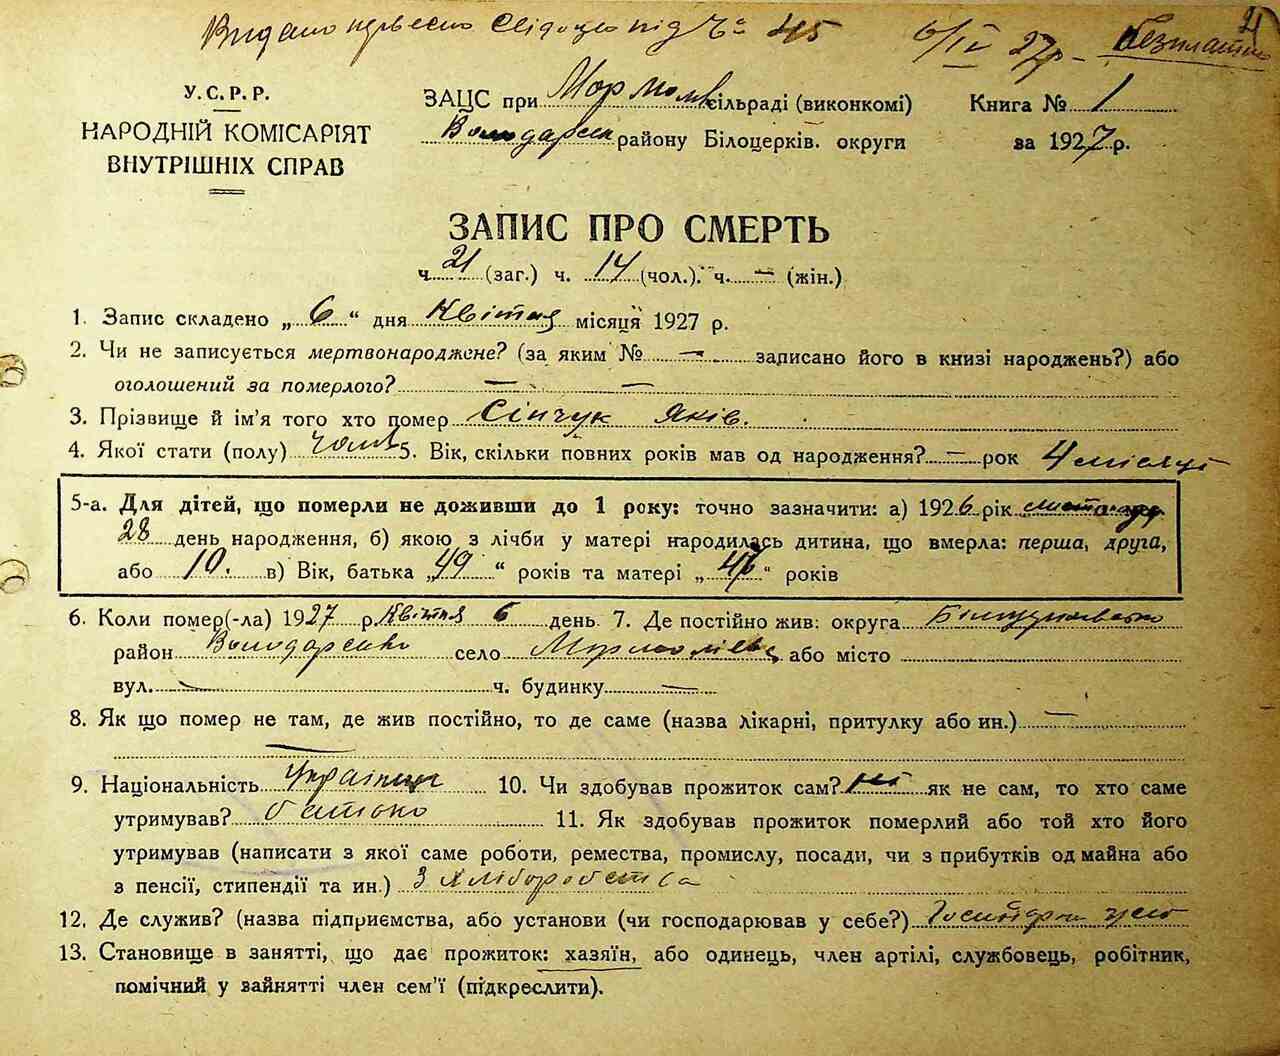 Видано первесно свідоцво під Ч° 45 6/IV 27р - безплатно
21
У.С.Р.Р.
НАРОДНІЙ КОМІСАРІЯТ
ВНУТРІШНІХ СПРАВ
ЗАЦС при сільраді (виконкомі)
Володарськ району Білоцерків. округи
Книга № 1
за 1927 р.
ЗАПИС ПРО СМЕРТЬ
ч. 21 (заг.) ч. 14 (чол.). ч. — (жін.)
1. Запис складено „ 6 “ дня Квітня місяця 1927 р.
2. Чи не записується мертвонароджене? (за яким № — записано його в книзі народжень?) або
оголошений за померлого? — —
3. Прізвище й ім'я того хто помер Сінчук Яків.
4. Якої стати (полу) чолов 5. Вік, скільки повних років мав од народження? — рок 4 місяці
5-а. Для дітей, що померли не доживши до 1 року: точно зазначити: а) 1926 рік листопаду
28 день народження, б) якою з лічби у матері народилась дитина, що вмерла: перша, друга,
або 10. в) Вік, батька „ 49 “ років та матері „ “ років
6. Коли помер(-ла) 1927 р. Квітня 6 день. 7. Де постійно жив: округа
район Володарсько село або місто
вул. — ч. будинку —
8. Як що помер не там, де жив постійно, то де саме (назва лікарні, притулку або ин.) —
9. Національність Українец 10. Чи здобував прожиток сам? ні як не сам, то хто саме
утримував? батько 11. Як здобував прожиток померлий або той хто його
утримував (написати з якої саме роботи, ремества, промислу, посади, чи з прибутків од майна або
з пенсії, стипендії та ин.) З хліборобства
12. Де служив? (назва підприємства, або установи (чи господарював у себе?)
13. Становище в занятті, що дає прожиток: хазяїн, або одинець, член артілі, службовець, робітник,
помічний у зайнятті член сем'ї (підкреслити).